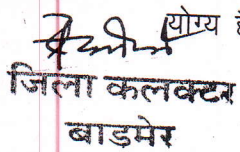 योग्य
जिला कलक्टर
बाड़मेर